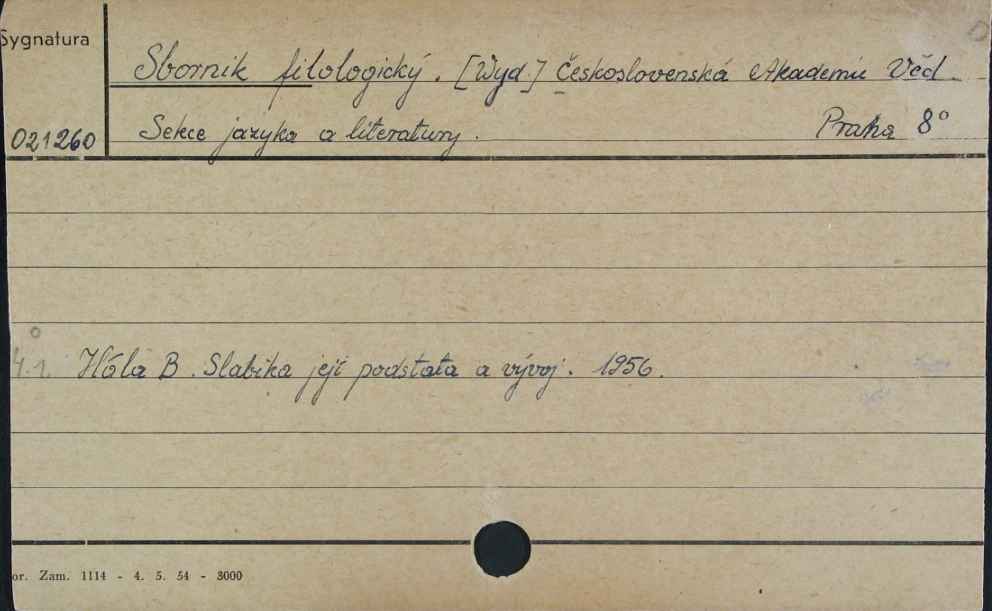 Sygnatura
Sbornik filologický. [Wyd.] Československá Akademie Věd
021260 Sekce jazyka a literatury. Praha 8°
4.1. Hála B. Slabika její podstata a vývoj. 1956.
or. Zam. 1114 - 4. 5. 54 - 3000